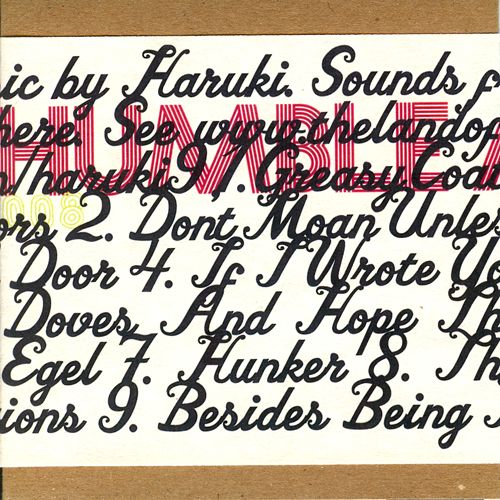 ic by Haruki. Sounds f
HUMBLE
here. See www.thelandof
n/haruki9, 1. Greasy Coat
2008
ors 2. Dont Moan Unles
Door 4. If I Wrote Yo
Doves And Hope Th
Egel 7. Hunker 8. Th
ions 9. Besides Being